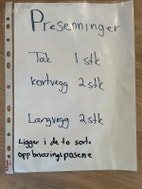 Presenninger
Tak 1 stk
Kortvegg 2 stk
Langvegg 2 stk
Ligger i de to sorte
oppbevaringsposene